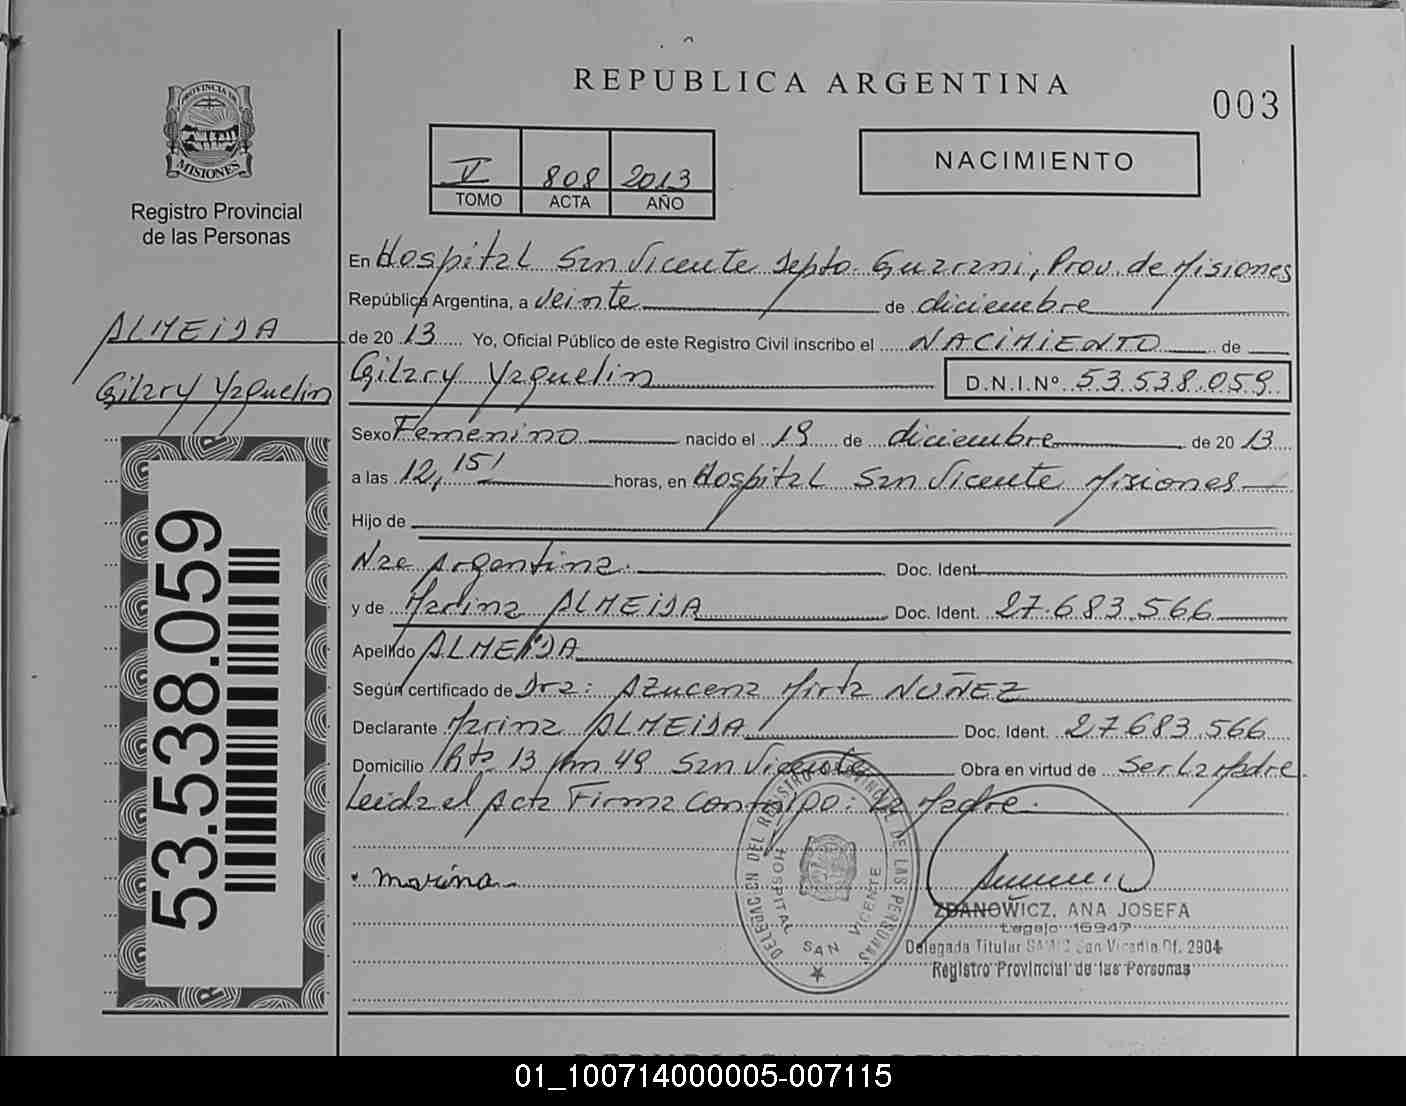 REPUBLICA ARGENTINA
003
PROVINCIA DE
MISIONES
Registro Provincial
de las Personas
V 808 2013
TOMO ACTA AÑO
NACIMIENTO
ALMEIDA
Gilary Yaquelin
53.538.059
En Hospital San Vicente Depto. Guarani, Prov. de Misiones
República Argentina, a veinte de diciembre
de 2013 Yo, Oficial Público de este Registro Civil inscribo el NACIMIENTO de
Gilary Yaquelin D.N.I.Nº 53.538.059
Sexo Femenino nacido el 19 de diciembre de 2013
a las 12,15 horas, en Hospital San Vicente Misiones
Hijo de
Nac Argentina. Doc. Ident.
y de Marina ALMEIDA Doc. Ident. 27.683.566
Apellido ALMEIDA
Según certificado de Dra: Azucena Mirta NUÑEZ
Declarante Marina ALMEIDA Doc. Ident. 27.683.566
Domicilio Rta 13 Km 49 San Vicente Obra en virtud de Ser La Madre.
Leida el Acta Firma Contaipo: La Madre.
Marina
DELEGACION DEL REGISTRO PROVINCIAL DE LAS PERSONAS
HOSPITAL SAN VICENTE
ZDANOWICZ, ANA JOSEFA
Legajo 16947
Delegada Titular San Vicente Of. 2904
Registro Provincial de las Personas
REPUBLICA ARGENTINA
01_100714000005-007115